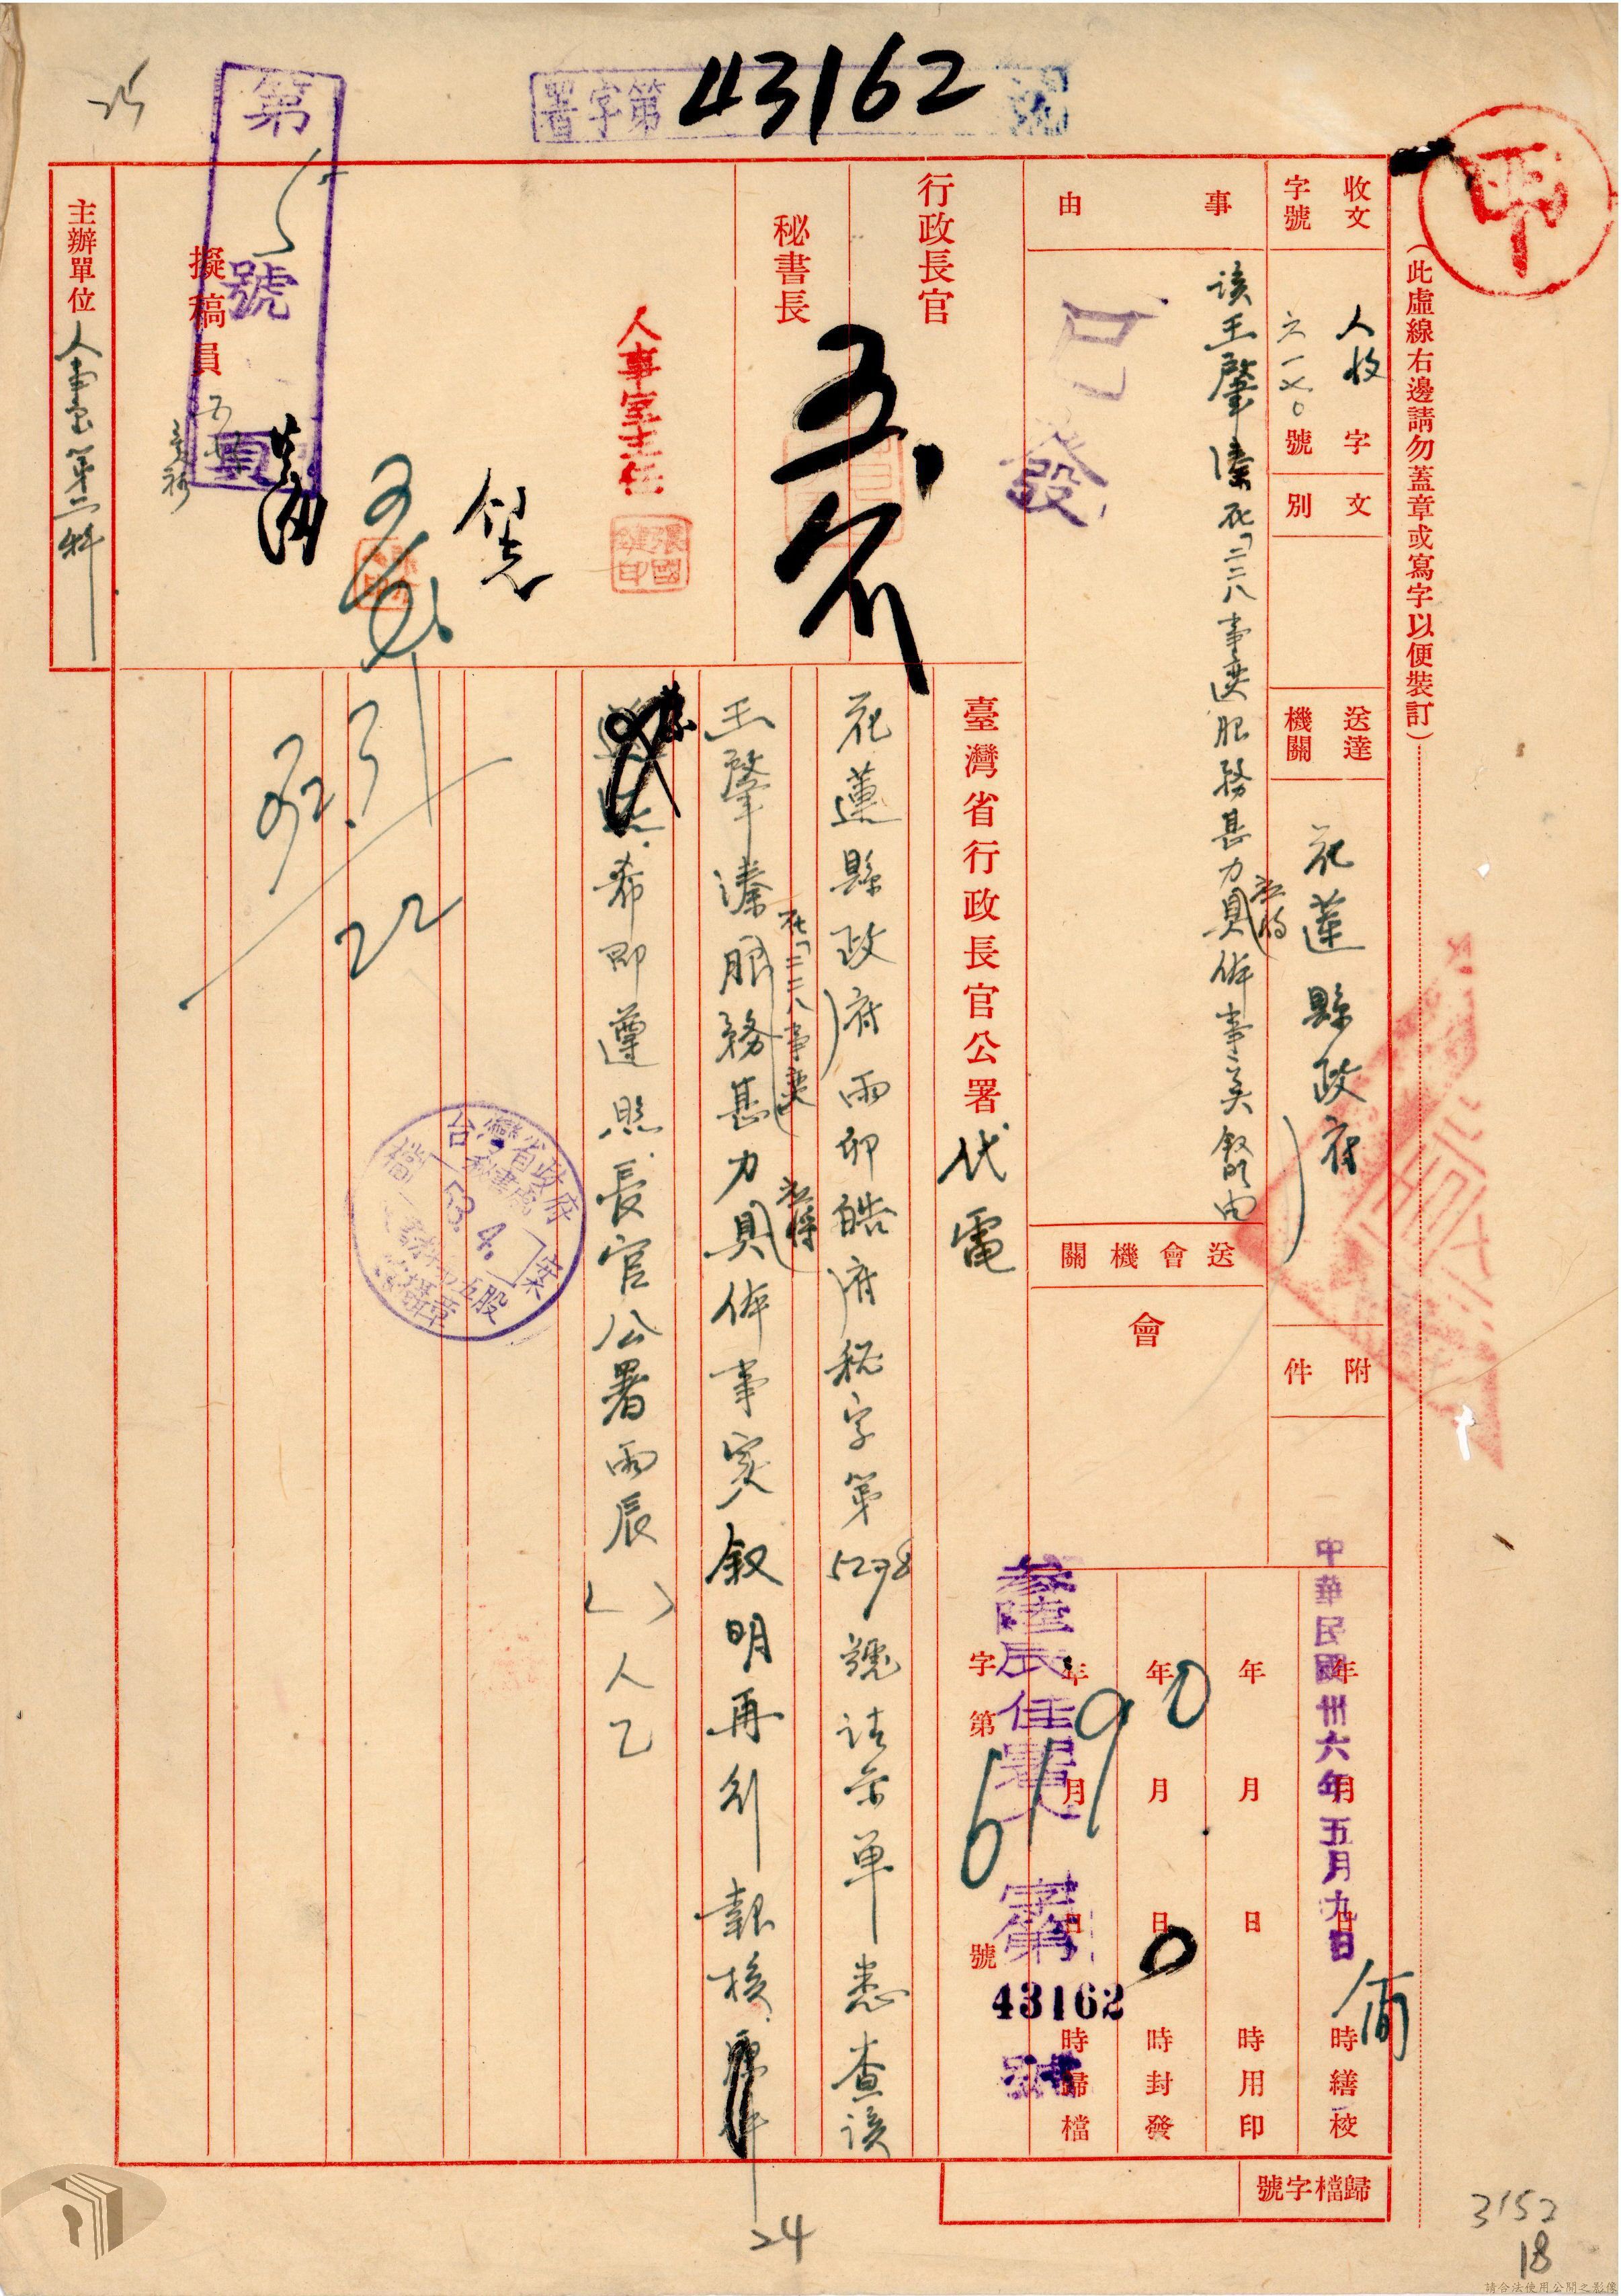 43162
署字第 號
甲
（此虛線右邊請勿蓋章或寫字以便裝訂）
收文
字號
人收 字
六一七〇號
文別
送達機關
花蓮縣政府
附件
事由
該王肇溱在「二二八事變」服務甚力應將具体事實敘由
已發
送會機關
會
行政長官
秘書長
人事室主任
張國鍵印
擬稿員
第 號
頁
主辦單位
人事室第二科
臺灣省行政長官公署
代電
花蓮縣政府雨卯皓府秘字第5298號請示單悉查該
王肇溱在「二二八事變」服務甚力應將具体事實敘明再行報核
希即遵照長官公署雨辰（ ）人乙
台灣省政府秘書處
檔 案
53.4.
股
攝章
中華民國卅六年五月九日
年 月 日 時繕校
年 月 日 時用印
年 月 日 時封發
年 月 日 時歸檔
字第 號
6190
參陸辰 署人 字第
43162
號
歸檔字號
25
24
3152
18
請合法使用公開之影像